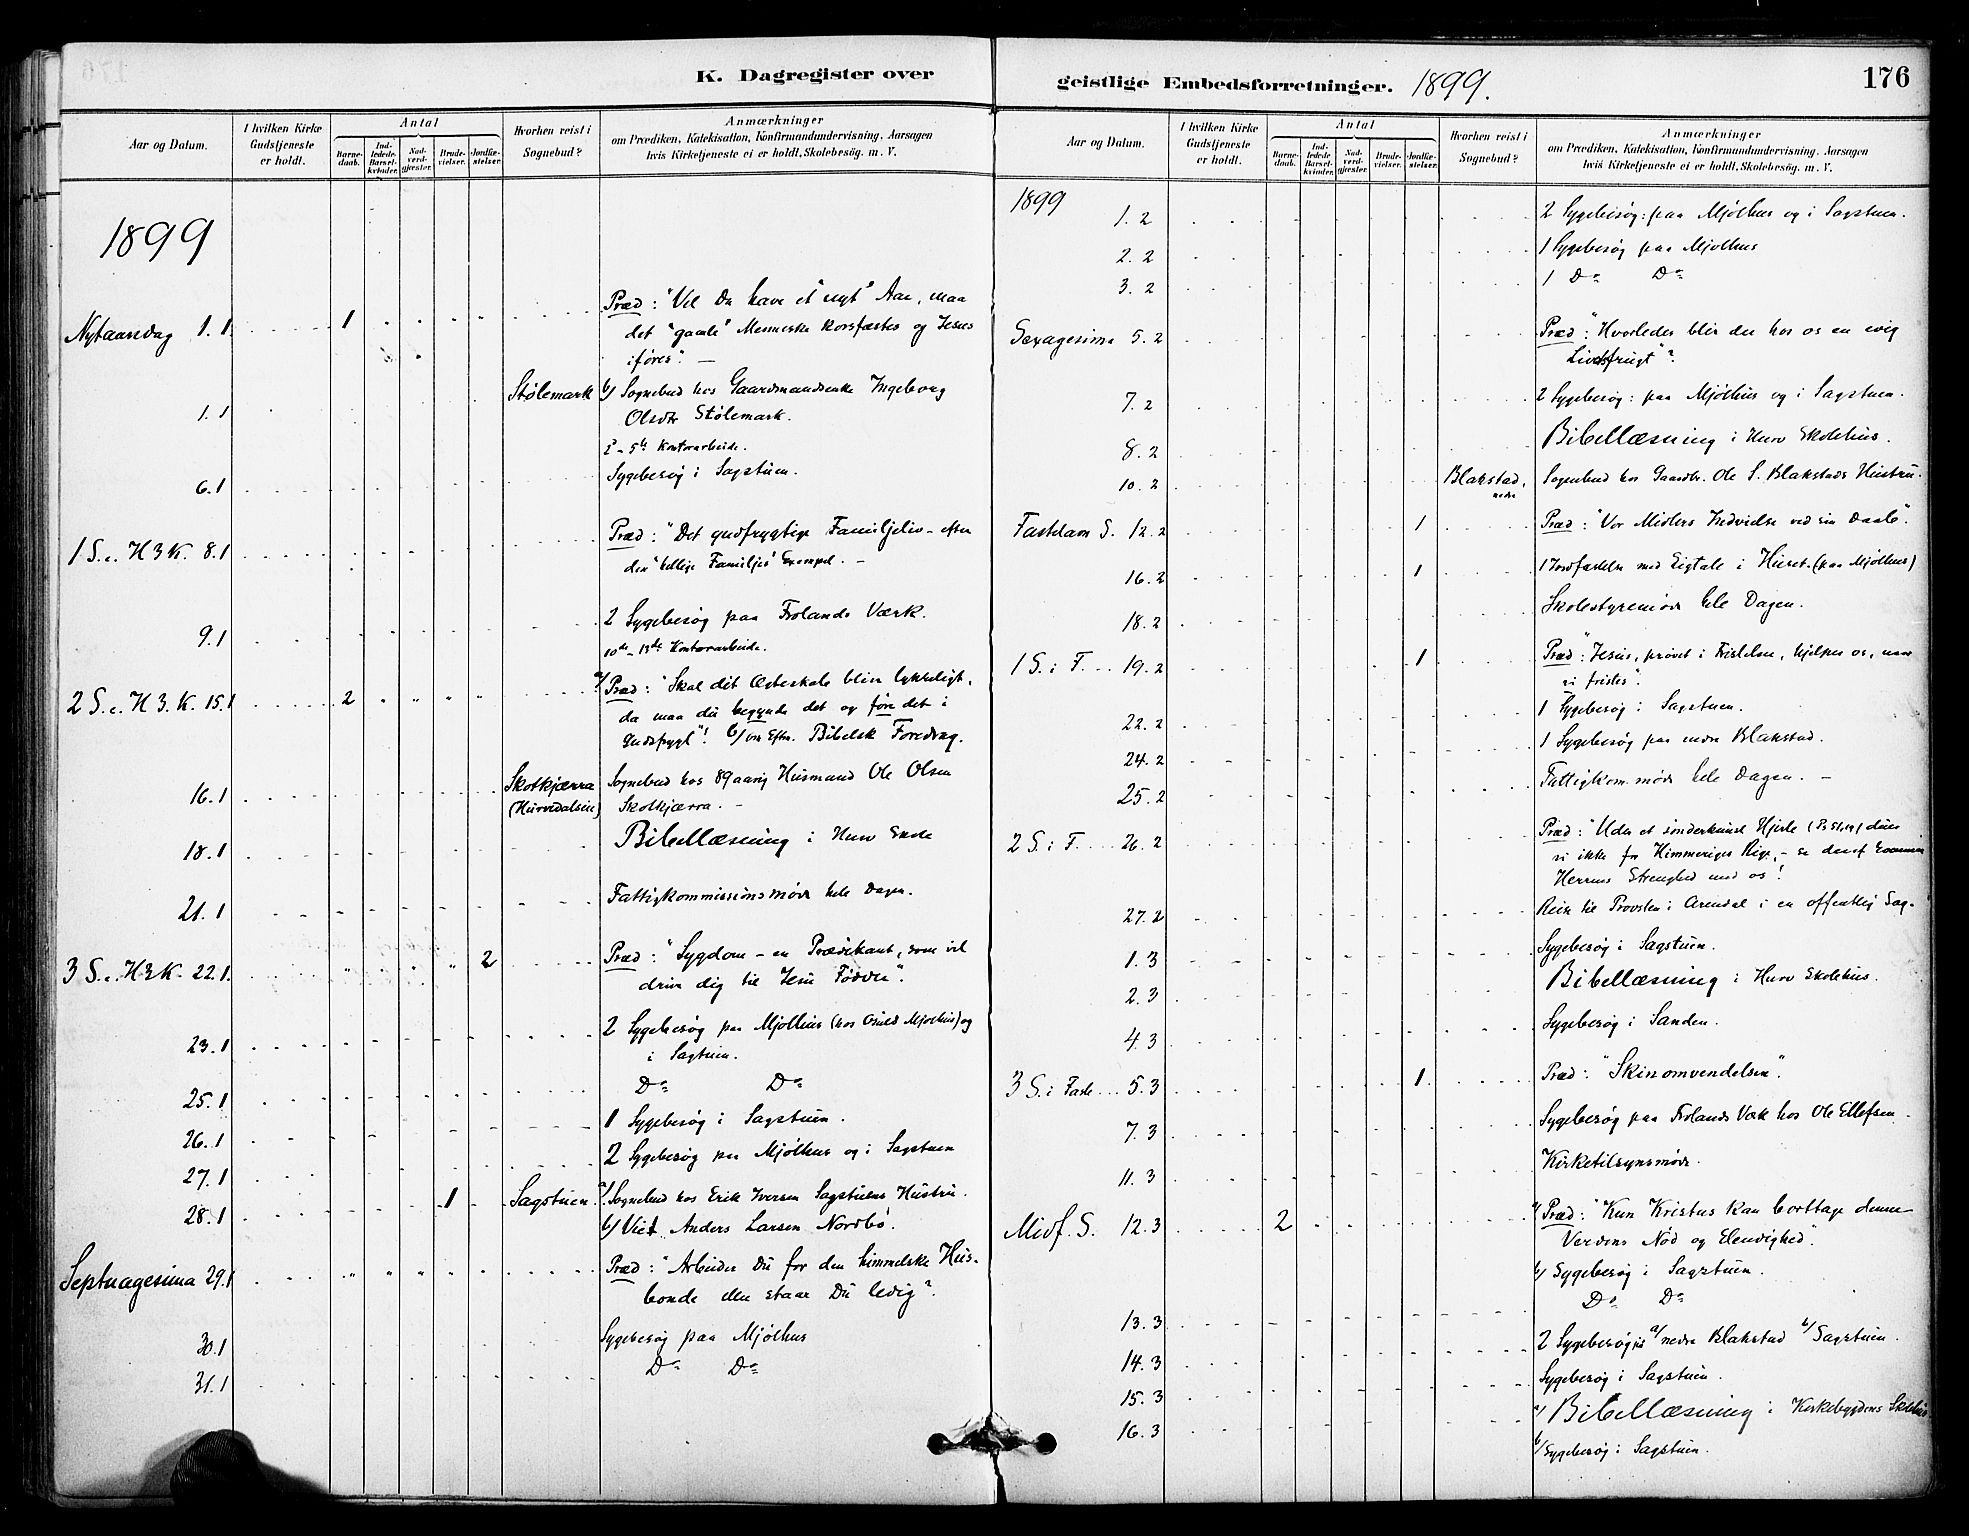 K. Dagregister over
Aar og Datum.
I hvilken Kirke Gudstjeneste er holdt.
Antal
Barnedaab.
Indledede Barselkvinder.
Nadverdgjæster.
Brudevielser.
Jordfæstelser.
Hvorhen reist i Sognebud?
Anmærkninger
om Prædiken, Katekisation, Konfirmandundervisning, Aarsagen
hvis Kirketjeneste ei er holdt, Skolebesög. m. V.
1899
Nytaarsdag 1.1 1 Præd: "Vil Du have et "nyt" Aar, maa
det "gamle" Menneske korsfæstes og Jesus
iføres". —
1.1 Stølemark b/ Sognebud hos Gaardmandsenke Ingeborg
Olsdtr Stølemark.
2-5te Kontorarbeide.
6.1 Sygebesøg i Sagstuen.
1 S. e. H 3 K. 8.1 Præd: "Det gudfrygtige Familjeliv - efter
den "hellige Familjes" Exempel. —
9.1 2 Sygebesøg paa Frolands Værk.
10de-13de Kontorarbeide.
2 S. e. H 3. K. 15.1 2 a/ Præd: "Skal dit Ægteskab blive lykkeligt,
da maa du begynde det og føre det i
Gudsfrygt"! b/ om Eftm. Bibelsk Foredrag.
16.1 Skotkjærra (Hurvedalen) Sognebud hos 89aarig Husmand Ole Olsen
Skotkjærra. -
18.1 Bibellæsning i Hurv Skole
21.1 Fattigkommissionsmøde hele Dagen.
3 S. e. H 3 K. 22.1 2 Præd: "Sygdom - en Prædikant, som vil
drive dig til Jesu Fødder".
23.1 2 Sygebesøg paa Mjølhus (hos Osuld Mjølhus) og
i Sagstuen.
25.1 Do Do
26.1 1 Sygebesøg i Sagstuen.
27.1 2 Sygebesøg paa Mjølhus og i Sagstuen
28.1 1 Sagstuen a/ Sognebud hos Erik Iversen Sagstuens Hustru.
b/ Viet Anders Larsen Nordbø.
Septuagesima 29.1 Præd: "Arbeider Du for den himmelske Hus-
bonde eller staar Du ledig"?
30.1 Sygebesøg paa Mjølhus
31.1 Do Do
geistlige Embedsforretninger. 1899.
176
Aar og Datum.
I hvilken Kirke Gudstjeneste er holdt.
Antal
Barnedaab.
Indledede Barselkvinder.
Nadverdgjæster.
Brudevielser.
Jordfæstelser.
Hvorhen reist i Sognebud?
Anmærkninger
om Prædiken, Katekisation, Konfirmandundervisning, Aarsagen
hvis Kirketjeneste ei er holdt, Skolebesög. m. V.
1899
1.2 2 Sygebesøg: paa Mjølhus og i Sagstuen.
2.2 1 Sygebesøg paa Mjølhus
3.2 1 Do Do
Sexagesima 5.2 Præd: "Hvorledes blir der hos os en evig
Livsfrugt"?
7.2 2 Sygebesøg: paa Mjølhus og i Sagstuen.
8.2 Bibellæsning i Hurv Skolehus.
10.2 Blakstad, nedre Sognebud hos Gaardbr. Ole S. Blakstads Hustru.
Fastelavn S. 12.2 1 Præd: "Vor Midlers Indvielse ved sin Daab".
16.2 1 1 Jordfæstelse med Ligtale i Huset (paa Mjølhus)
18.2 Skolestyremøde hele Dagen.
1 S. i F. 19.2 1 Præd: "Jesus, prøvet i Fristelsen, hjelper os, naar
vi fristes".
22.2 1 Sygebesøg i Sagstuen.
24.2 1 Sygebesøg paa nedre Blakstad.
25.2 Fattigkom.møde hele Dagen. —
2 S. i F. 26.2 Præd: "Uden et sønderknust Hjerte (Ps 51,19)
vi ikke for Himmeriges Rige, - se deraf
Herrens Strenghed med os!
27.2 Reise til Provsten i Arendal i en offentlig Sag.
1.3 Sygebesøg i Sagstuen.
2.3 Bibellæsning i Hurv Skolehus.
4.3 Sygebesøg i Sanden.
3 S. i Faste 5.3 1 Præd: "Skinomvendelsen".
7.3 Sygebesøg paa Frolands Værk hos Ole Ellefsen.
11.3 Kirketilsynsmøde.
Midf. S. 12.3 2 a/ Præd: "Kun Kristus kan borttage denne
Verdens Nød og Elendighed".
b/ Sygebesøg i Sagstuen.
13.3 Do Do
14.3 2 Sygebesøg: a/ nedre Blakstad b/ Sagstuen.
15.3 Sygebesøg i Sagstuen.
16.3 a/ Bibellæsning i Kirkebygdens Skolehus
b/ Sygebesøg i Sagstuen.